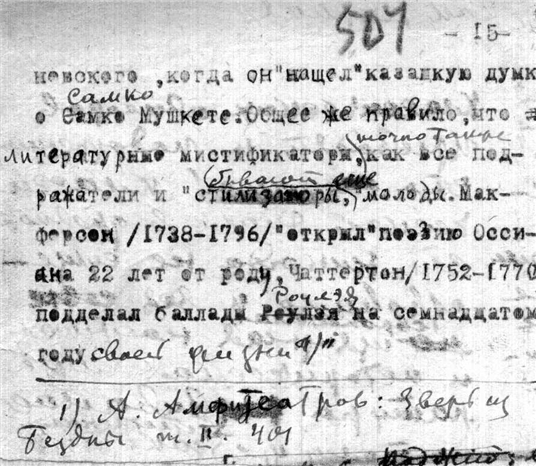 507 - 15-
невского ,когда он"нащел"казацкую думк
Самко
о Самко Мушкете.Общее же правило,что
точно также
литературные мистификаторы,как все под-
бывают еще
ражатели и "стилизаторы,"молоды.Мак-
ферсон /1738-1796/"открыл"поэзию Осси-
ана 22 лет от роду,Чаттертон/1752-1770
Роулэя
подделал баллады Роулзя на семнадцатом
году своей жизни 1/"
1) А. Амфитеатров: Зверь из
Бездны т. II. 401